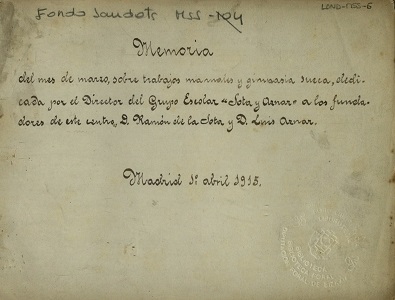 Fondo Sandots MSS-704
Memoria
del mes de marzo, sobre trabajos manuales y gimnasia sueca, dedi-
cada por el Director del Grupo Escolar "Sota y Aznar" a los funda-
dores de este centro, D. Ramón de la Sota y D. Luis Aznar.
Madrid 1º abril 1915.